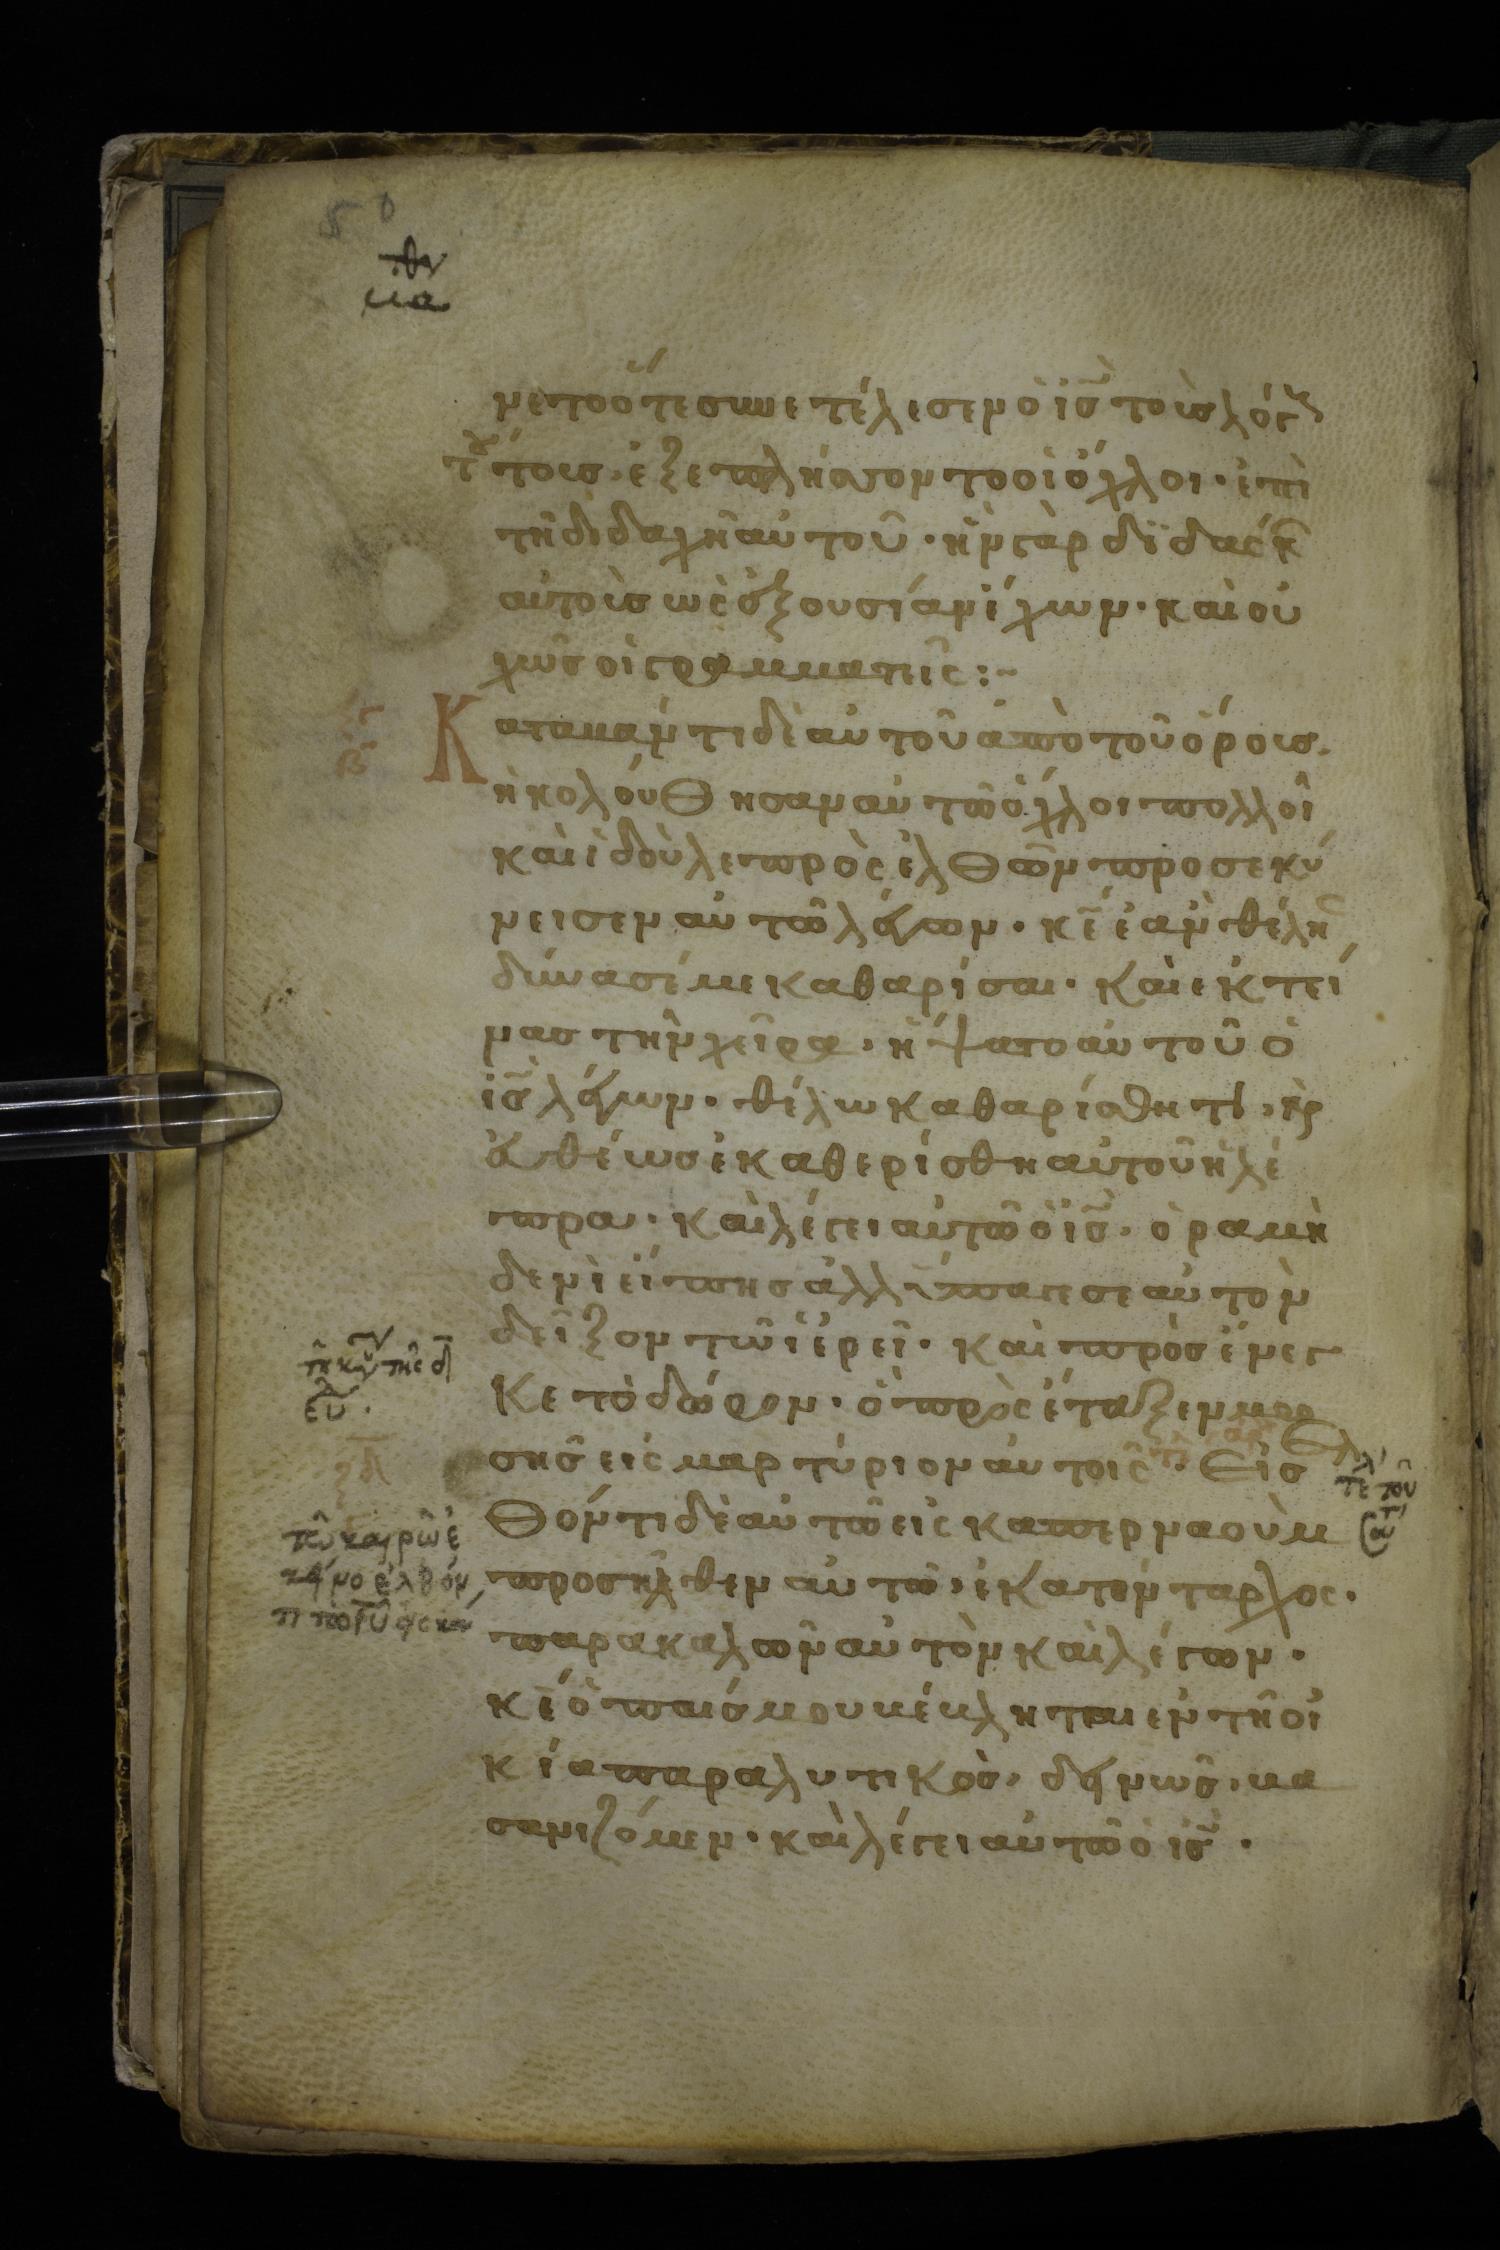 νετοὅτεσυνετέλεσενὁἰς̄τοὺσλόγ
τ τοισ. ἐξεπλήσσοντοοἱὄχλοι· ἐπὶ
τῆδιδαχῆαὐτοῦ· ἦνγὰρδϊδάσκ
αὐτοὺσὡςἐξουσίανἔχων· καὶοὐ
χὡσοἱγραμματεῖς:~
Καταβάντιδὲαὐτοῦἀπὸτοῦὄρουσ.
ἠκολούθησαναὐτῶὄχλοιπολλοῖ
καὶἰδοὺλεπρὸςἐλθὼνπροσεκύ
νεισεναὐτῶλέγων· κε̄ἐὰνθέλης
δύνασέμεκαθαρίσαι· καὶἐκτεί
νασ τὴνχεῖρα· ἥψατοαὐτοῦὁ
ἰς̄λέγων· θέλωκαθαρίσθητι· κὶ
ἐυθέωσἐκαθερίσθηαὐτοῦἡλέ
πρα· καὶλέγειαὐτῶὁἰς̄· ὅραμὴ
δενὶεἴπησἀλλ' ὕπαγεσεαὐτὸν
δεῖξοντῶἱερεῖ· καὶπρὸσένεγ
κετὸδῶρον· ὁπρὸςέταξενμωυ
σῆσεἰςμαρτύριοναὐτοῖς· Εἰσελ
θόντιδὲαὐτῶεἰςκαπερναοὺμ
προσῆλθεναὐτῶ· ἑκατόνταρχος·
παρακαλῶναὐτὸνκαὶλέγων·
κέ̄ὁπαῖσμουβέβληταιεντῆοἰ
κίαπαραλυτικὸσ· δεινῶσ· βα
σανιζόμεν· καὶλέγειαὐτῶὁἰς̄·